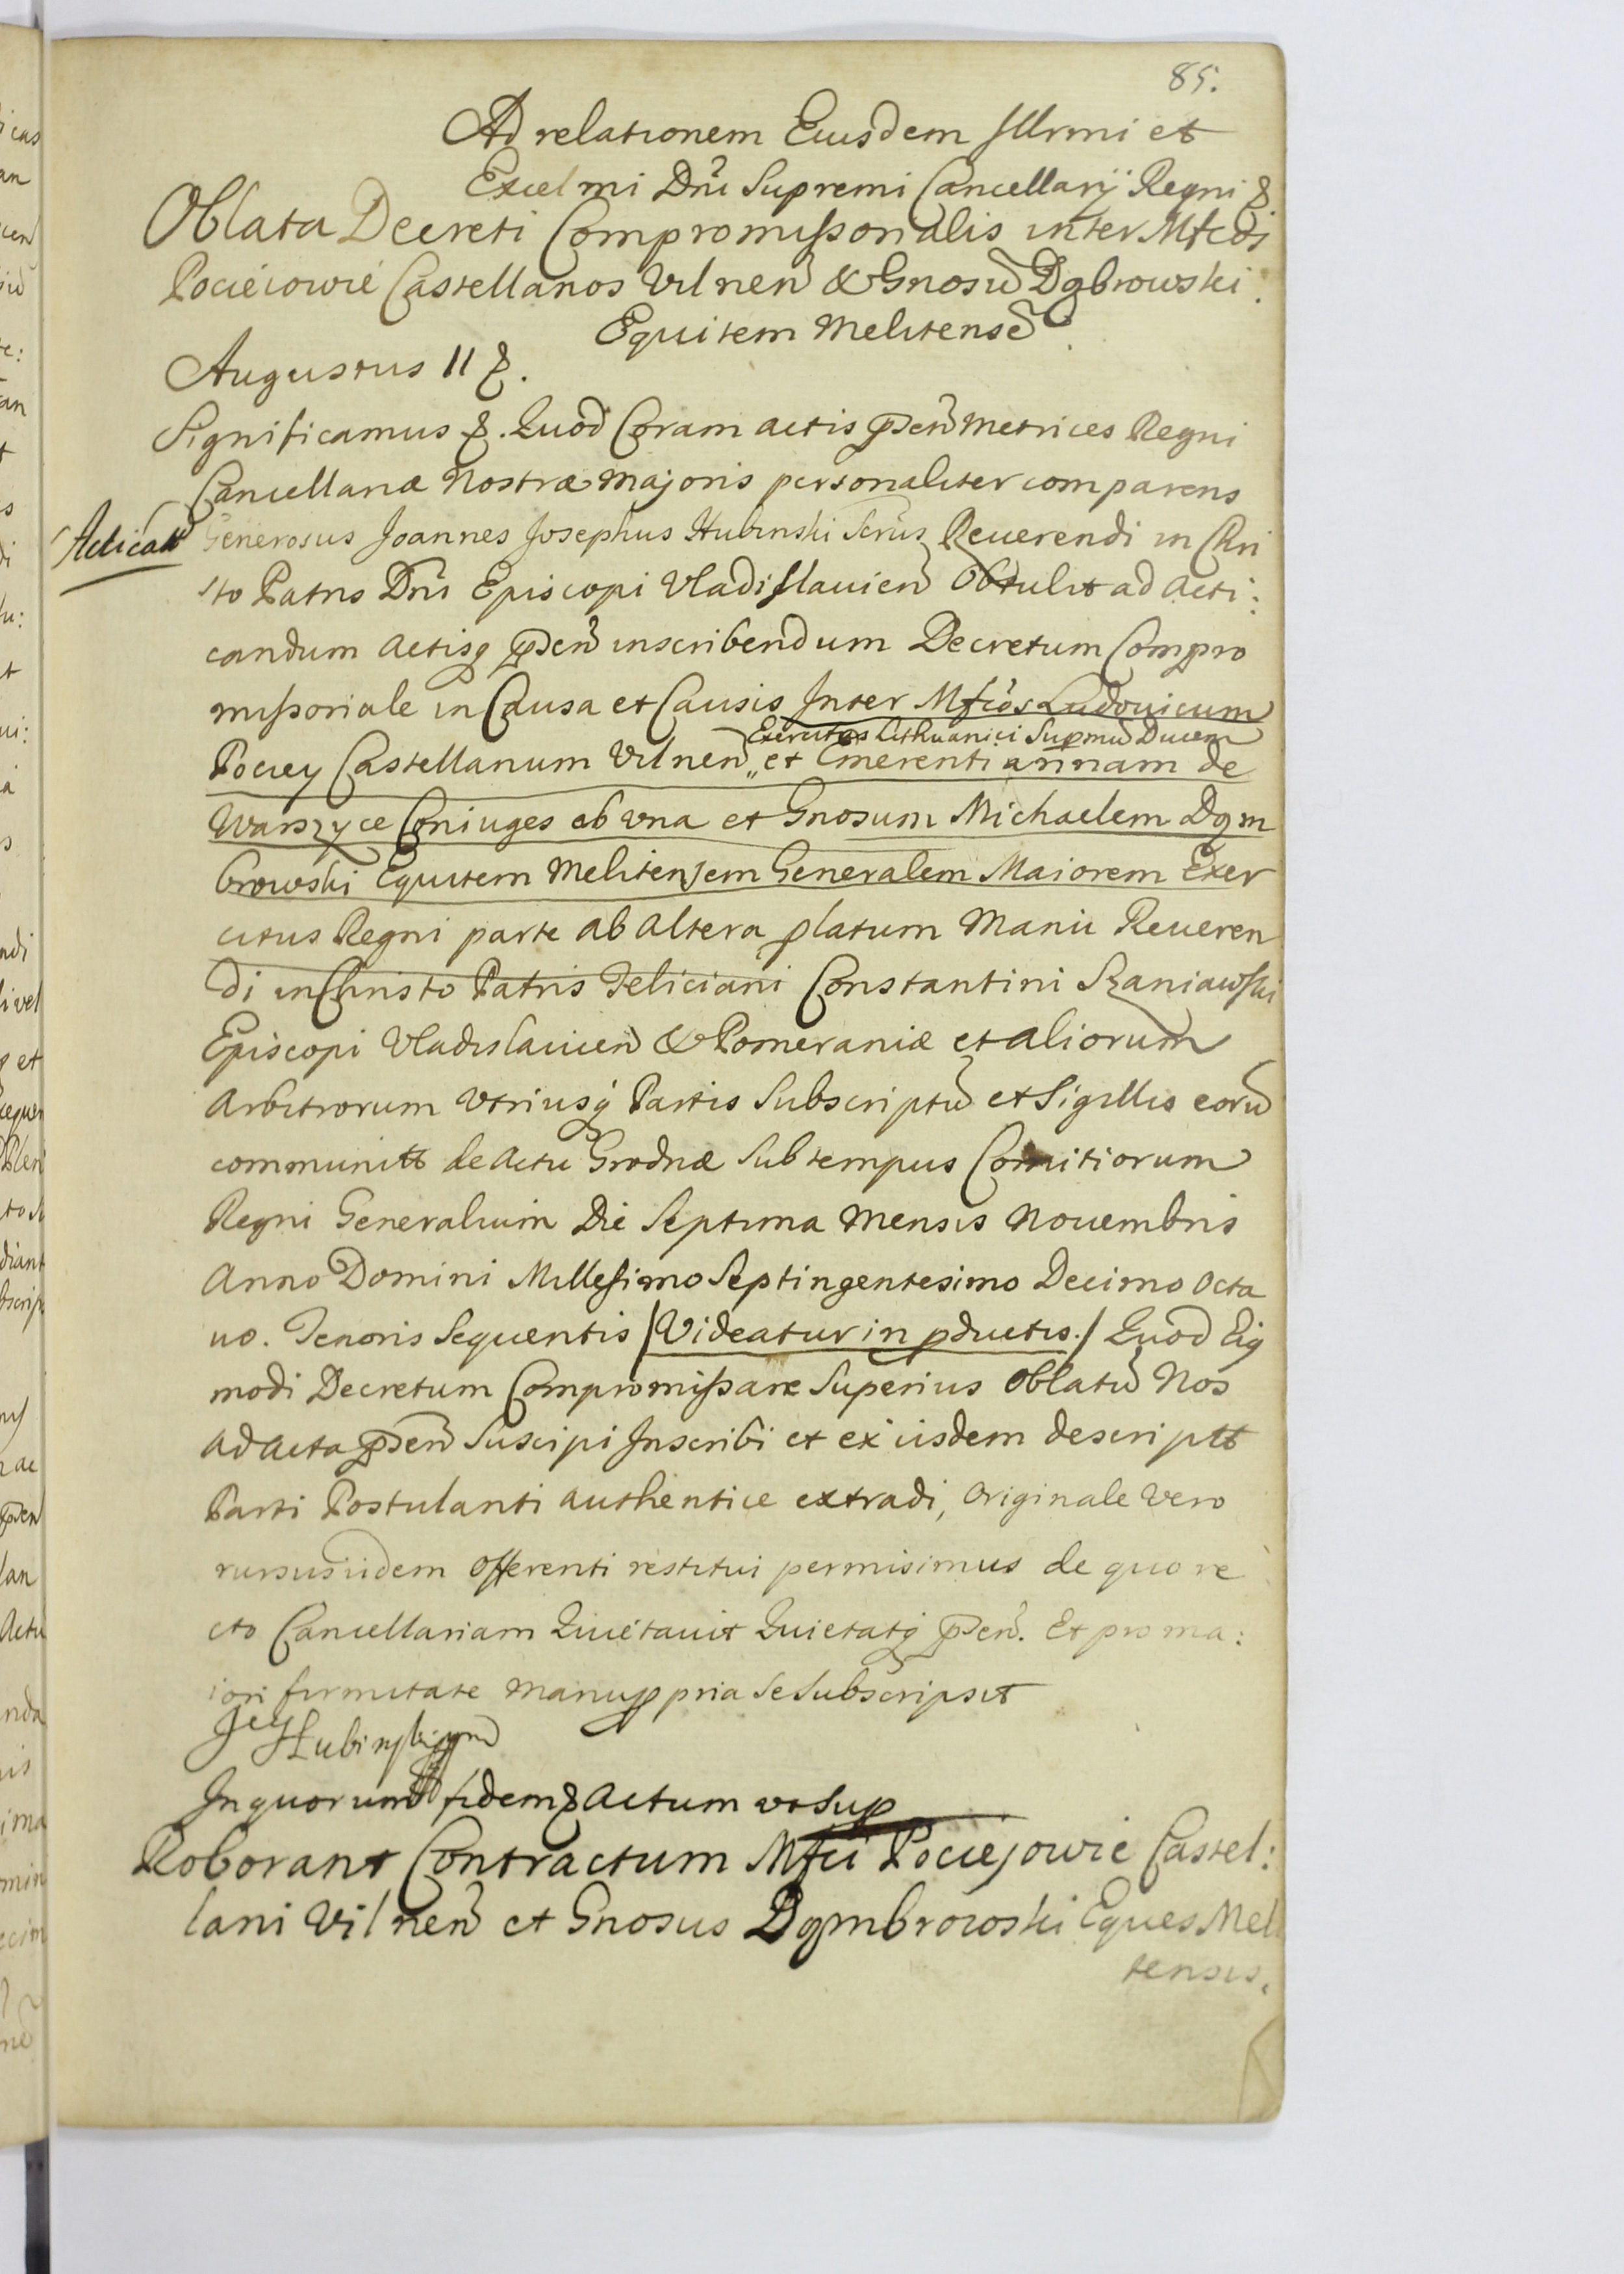 85.
Ad relationem Eiusdem Illrmi et
Excelmi Dni Supremi Cancellarij Regni &
Oblata Decreti Compromissorialis inter Mfcos
Pocieiowie Castellanos Vilnen & Gnosu Dąbrowski
Equitem Melitense
Augustus II &.
Significamus &. Quod Coram actis pñden Metrices Regni
Cancellariæ Nostræ Majoris personaliter comparens
Acticatt
Generosus Joannes Josephus Hubinski Scrus Reuerendi in Chri
sto Patris Dni Episcopi Vladislauien Obtulit ad Acti:
candum Actisq pñden inscribendum Decretum Compro
missoriale in Causa et Causis Inter Mfcos Ludouicum
Exercitus Lithuanici Supmu Ducem
Pociey Castellanum Vilnen „ et Emerentiannam de
Warszyce Coniuges ab vna et Gnosum Michaelem Dąm
browski Equitem Melitensem Generalem Maiorem Exer
citus Regni parte ab Altera platum Manu Reueren
di in Christo Patris Feliciani Constantini Szaniawski
Episcopi Vladislauien & Pomeraniæ et aliorum
Arbitrorum Vtriusq Partis Subscriptu et Sigillis eoru
communitt de Actu Grodnæ Sub tempus Comitiorum
Regni Generalium Die Septima Mensis Nouembris
Anno Domini Millesimo Septingentesimo Decimo Octa
uo. Tenoris Sequentis /Videatur in pductis./ Quod Eiq
modi Decretum Compromissare Superius Oblatu Nos
Ad Acta pñden Suscipi Inscribi et ex iisdem descriptt
Parti Postulanti authentice extradi, Originale Vero
rursus iidem Offerenti restitui permisimus de quo re
cto Cancellariam Quietauit Quietatq pñden. Et pro ma:
iori firmitate Manu ppria Se Subscripsit
In quorum fidem & Actum vt Sup
Roborant Contractum Mfci Pociejowie Castel:
lani Vilnen et Gnosus Dąmbrowski Eques Meli
tensis.